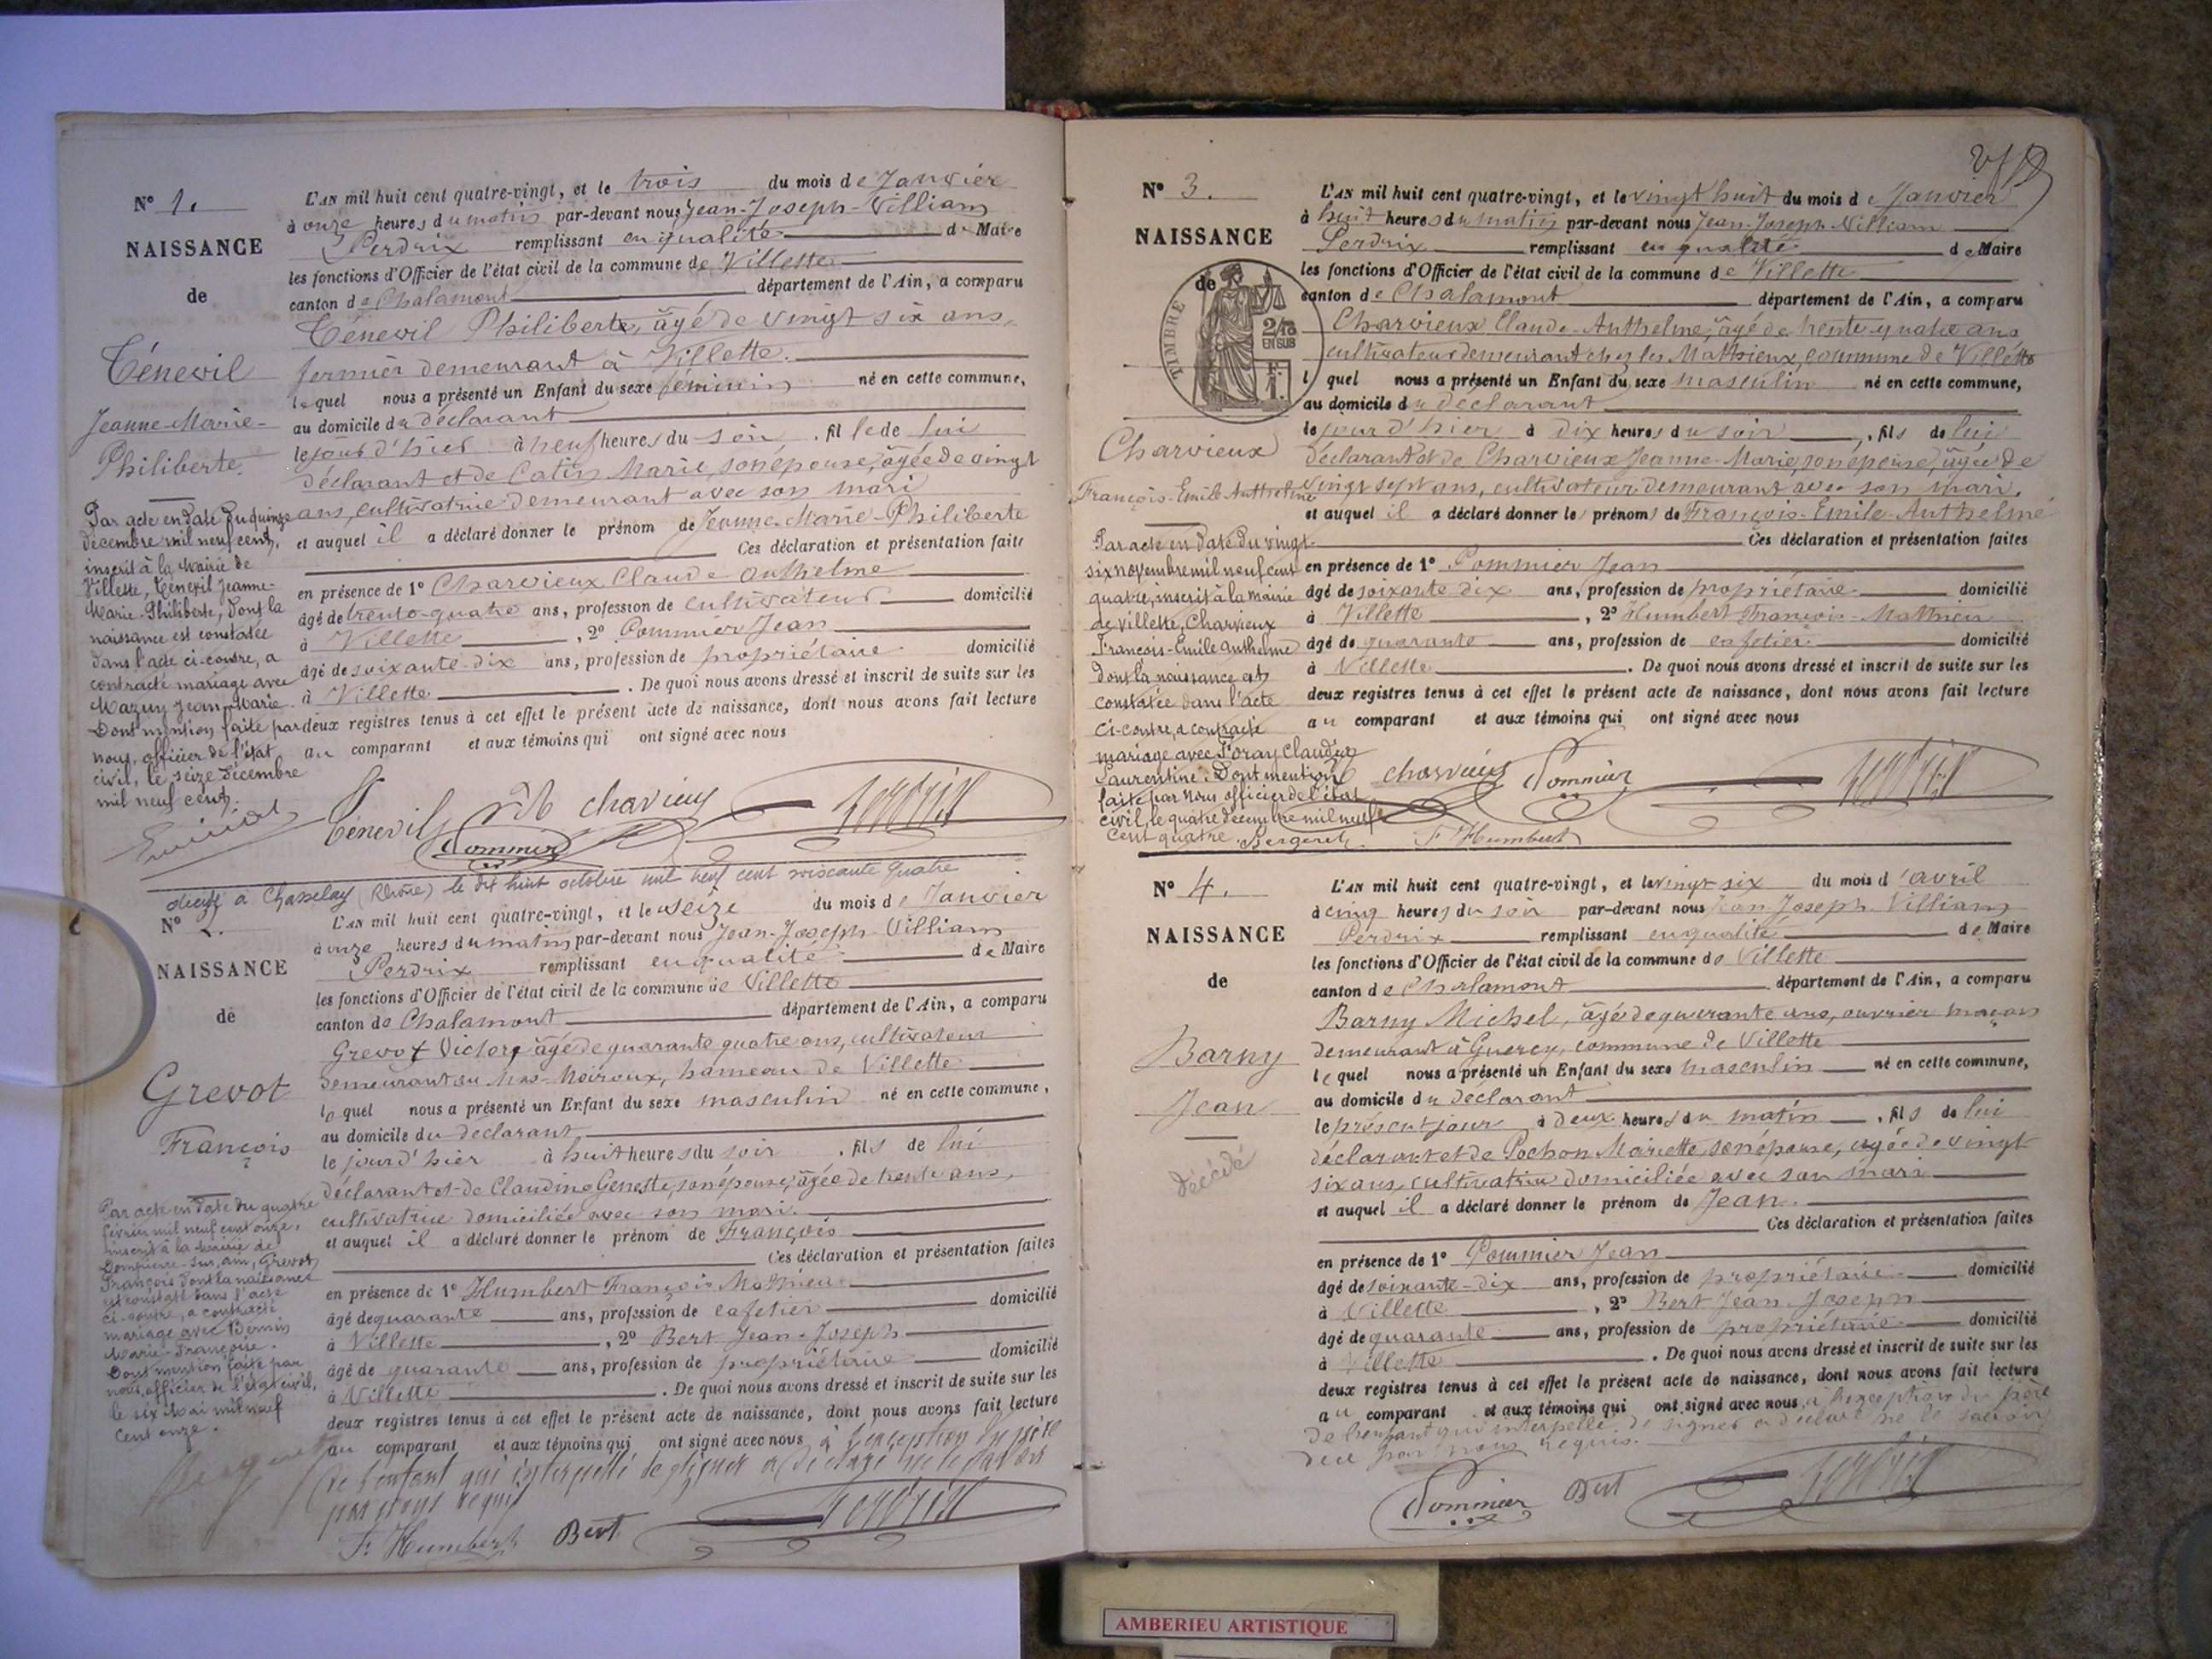 N° 1.
NAISSANCE
de
Ténevil
Jeanne-Marie-
Philiberte.
Par acte en date du quinze
décembre mil neuf cent,
inscrit à la Mairie de
Villette, Ténevil Jeanne-
Marie-Philiberte, dont la
naissance est constatée
dans l'acte ci-contre, a
contracté mariage avec
Mazuy Jean-Marie.
Dont mention faite par
nous, officier de l'état
civil, le seize décembre
mil neuf cent.
L'AN mil huit cent quatre-vingt, et le trois du mois de Janvier
à onze heures du matin par-devant nous Jean-Joseph-Villiam
Perdrix remplissant en qualité de Maire
les fonctions d'Officier de l'état civil de la commune de Villette
canton de Chalamont département de l'Ain, a comparu
Ténevil Philibert, âgé de vingt six ans,
fermier demeurant à Villette.
lequel nous a présenté un Enfant du sexe féminin né en cette commune,
au domicile du déclarant
le jour d'hier à neuf heures du soir, fille de lui
déclarant et de Catin Marie, son épouse, âgée de vingt
ans, cultivatrice demeurant avec son mari
et auquel il a déclaré donner le prénom de Jeanne-Marie-Philiberte
Ces déclaration et présentation faites
en présence de 1° Charvieux Claude Anthelme
âgé de trente-quatre ans, profession de cultivateur domicilié
à Villette, 2° Pommier Jean
âgé de soixante-dix ans, profession de propriétaire domicilié
à Villette. De quoi nous avons dressé et inscrit de suite sur les
deux registres tenus à cet effet le présent acte de naissance, dont nous avons fait lecture
au comparant et aux témoins qui ont signé avec nous
Ténevil charvieux Perdrix
Pommier
décédé à Chasselay (Rhône) le dix huit octobre mil neuf cent soixante quatre
N° 2.
NAISSANCE
de
Grevot
François
Par acte en date du quatre
février mil neuf cent onze,
inscrit à la Mairie de
Dompierre-sur-ain, Grevot
François dont la naissance
est constaté dans l'acte
ci-contre, a contracté
mariage avec Bernin
Marie-Françoise.
Dont mention faite par
nous, officier de l'état civil,
le six Mai mil neuf
cent onze.
L'AN mil huit cent quatre-vingt, et le seize du mois de Janvier
à onze heures du matin par-devant nous Jean-Joseph Villiam
Perdrix remplissant en qualité de Maire
les fonctions d'Officier de l'état civil de la commune de Villette
canton de Chalamont département de l'Ain, a comparu
Grevot Victor, âgé de quarante quatre ans, cultivateur
demeurant au Mas-Noiroux, hameau de Villette
lequel nous a présenté un Enfant du sexe masculin né en cette commune,
au domicile du déclarant
le jour d'hier à huit heures du soir, fils de lui
déclarant et de Claudine Geneste, son épouse, âgée de trente ans,
cultivatrice domiciliée avec son mari.
et auquel il a déclaré donner le prénom de François
Ces déclaration et présentation faites
en présence de 1° Humbert François Mathieu
âgé de quarante ans, profession de cafetier domicilié
à Villette, 2° Bert Jean-Joseph
âgé de quarante ans, profession de propriétaire domicilié
à Villette. De quoi nous avons dressé et inscrit de suite sur les
deux registres tenus à cet effet le présent acte de naissance, dont nous avons fait lecture
au comparant et aux témoins qui ont signé avec nous à l'exception du père
de l'enfant qui interpellé de signer a déclaré ne le savoir
par nous requis
F. Humbert Bert Perdrix
N° 3.
NAISSANCE
de
TIMBRE
2/10
EN SUS
F.
1.
Charvieux
François-Emile Anthelme
Par acte en date du vingt-
six novembre mil neuf cent
quatre, inscrit à la mairie
de Villette, Charvieux
François-Emile Anthelme
dont la naissance est
constatée dans l'acte
ci-contre, a contracté
mariage avec Claudine
Laurentine. Dont mention
faite par nous officier de l'état
civil, le quatre décembre mil neuf
cent quatre. Bergeret
L'AN mil huit cent quatre-vingt, et le vingt huit du mois de Janvier
à huit heures du matin par-devant nous Jean-Joseph-Villiam
Perdrix remplissant en qualité de Maire
les fonctions d'Officier de l'état civil de la commune de Villette
canton de Chalamont département de l'Ain, a comparu
Charvieux Claude-Anthelme, âgé de trente-quatre ans
cultivateur demeurant chez les Mathieux, commune de Villette
lequel nous a présenté un Enfant du sexe masculin né en cette commune,
au domicile du déclarant
le jour d'hier à dix heures du soir, fils de lui
déclarant et de Charvieux Jeanne-Marie, son épouse, âgée de
vingt sept ans, cultivateur demeurant avec son mari.
et auquel il a déclaré donner les prénoms de François-Emile-Anthelme
Ces déclaration et présentation faites
en présence de 1° Pommier Jean
âgé de soixante dix ans, profession de propriétaire domicilié
à Villette, 2° Humbert François-Mathieu
âgé de quarante ans, profession de cafetier domicilié
à Villette. De quoi nous avons dressé et inscrit de suite sur les
deux registres tenus à cet effet le présent acte de naissance, dont nous avons fait lecture
au comparant et aux témoins qui ont signé avec nous
charvieux Pommier Perdrix
F Humbert
N° 4.
NAISSANCE
de
Barny
Jean
décédé
L'AN mil huit cent quatre-vingt, et le vingt-six du mois d'avril
à cinq heures du soir par-devant nous Jean-Joseph-Villiam
Perdrix remplissant en qualité de Maire
les fonctions d'Officier de l'état civil de la commune de Villette
canton de Chalamont département de l'Ain, a comparu
Barny Michel, âgé de quarante ans, ouvrier maçon
demeurant à Guercy, commune de Villette
lequel nous a présenté un Enfant du sexe masculin né en cette commune,
au domicile du déclarant
le présent jour à deux heures du matin, fils de lui
déclarant et de Pochon Mariette, son épouse, âgée de vingt
six ans, cultivatrice domiciliée avec son mari
et auquel il a déclaré donner le prénom de Jean.
Ces déclaration et présentation faites
en présence de 1° Pommier Jean
âgé de soixante-dix ans, profession de propriétaire domicilié
à Villette, 2° Bert Jean Joseph
âgé de quarante ans, profession de propriétaire domicilié
à Villette. De quoi nous avons dressé et inscrit de suite sur les
deux registres tenus à cet effet le présent acte de naissance, dont nous avons fait lecture
au comparant et aux témoins qui ont signé avec nous, à l'exception du père
de l'enfant qui interpellé de signer a déclaré ne le savoir
par nous requis.
Pommier Bert Perdrix
AMBERIEU ARTISTIQUE